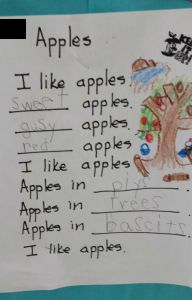 Apples
I like apples.
sweet apples.
gusy apples.
red apples
I like apples
Apples in piys
Apples in trees
Apples in bascits.
I like apples.